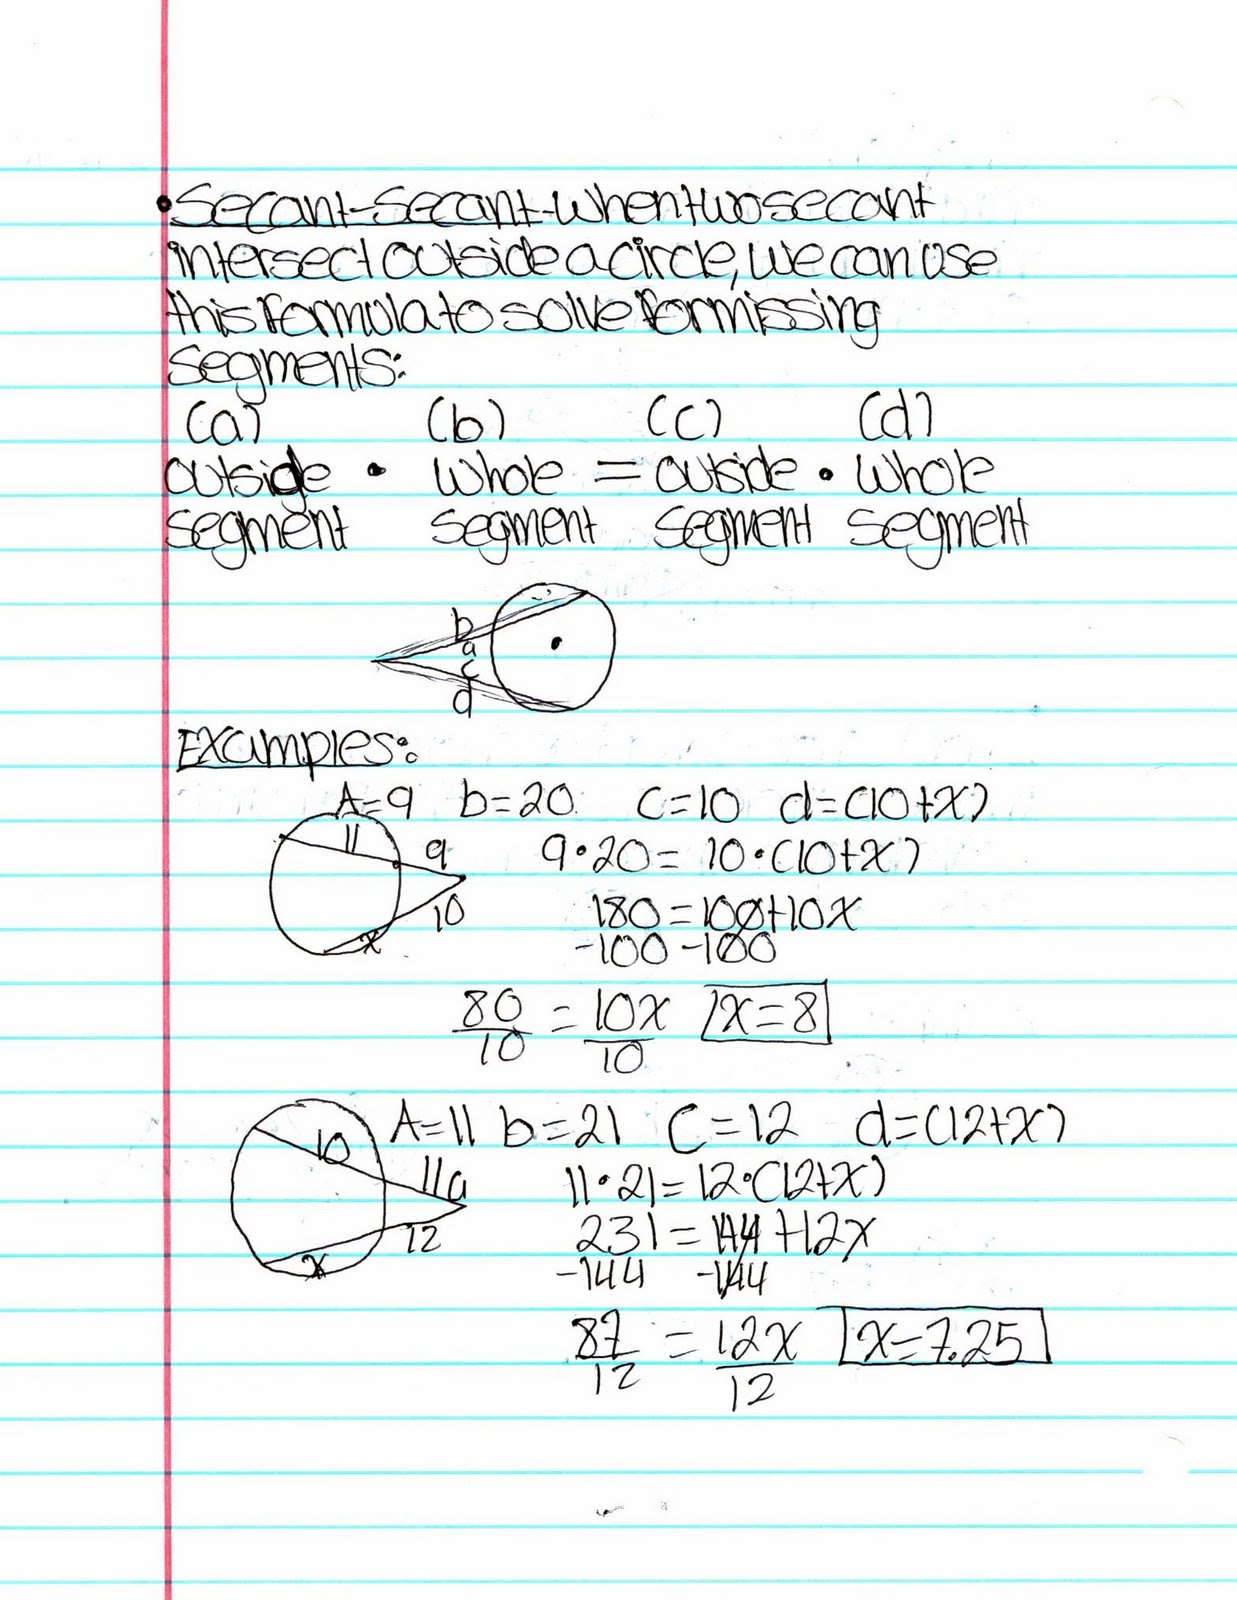 • Secant-Secant-When two secant
intersect outside a circle, we can use
this formula to solve for missing
segments:
(a) (b) (c) (d)
outside • whole = outside • whole
segment segment segment segment
b
a
c
d
Examples:
A=9 b=20 C=10 d=(10+x)
11 9 9•20= 10•(10+x)
10 180=100+10x
x -100 -100
80/10 = 10x/10 x=8
10 A=11 b=21 C=12 d=(12+x)
11a 11•21=12•(12+x)
12 231=144+12x
x -144 -144
87/12 = 12x/12 x=7.25